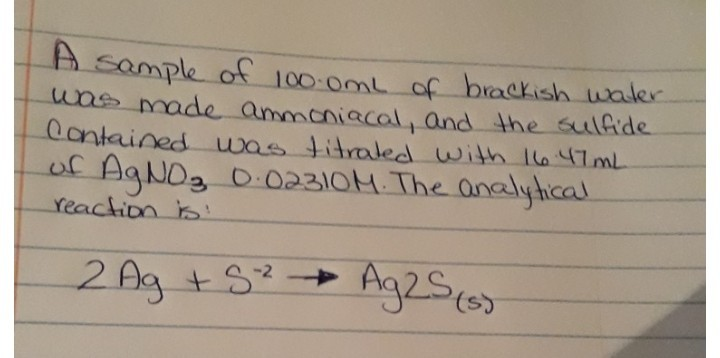 A sample of 100.0mL of brackish water
was made ammoniacal, and the sulfide
Contained was titrated with 16.47mL
of AgNO₃ 0.02310M. The analytical
reaction is:
2 Ag + S⁻² → Ag2S(s)